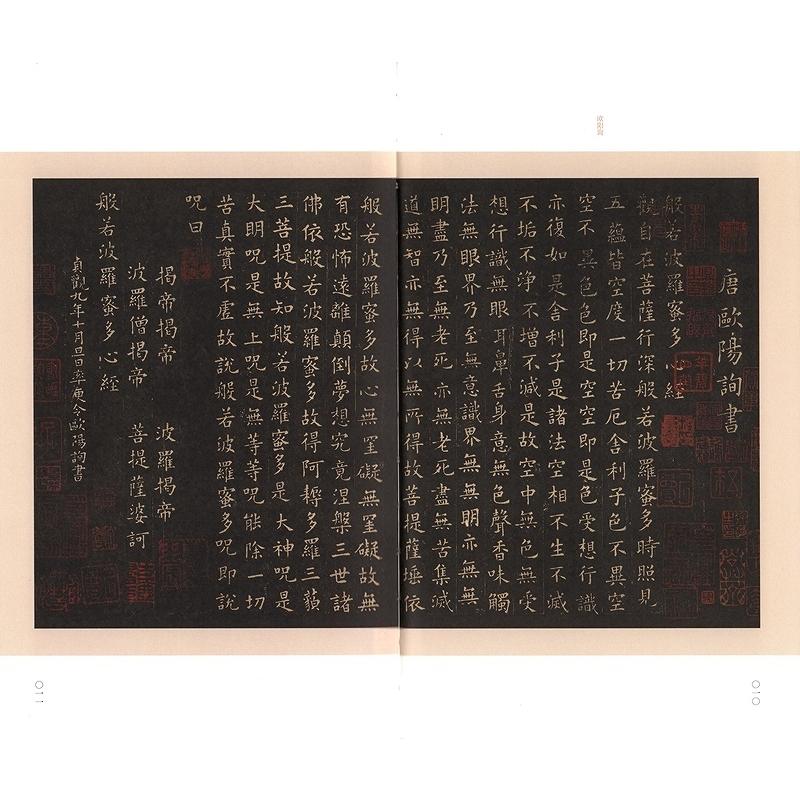 歐陽詢
唐歐陽詢書
般若波羅蜜多心經
觀自在菩薩行深般若波羅蜜多時照見
五蘊皆空度一切苦厄舍利子色不異空
空不異色色即是空空即是色受想行識
亦復如是舍利子是諸法空相不生不滅
不垢不淨不增不減是故空中無色無受
想行識無眼耳鼻舌身意無色聲香味觸
法無眼界乃至無意識界無無明亦無無
明盡乃至無老死亦無老死盡無苦集滅
道無智亦無得以無所得故菩提薩埵依
〇一〇
般若波羅蜜多故心無罣礙無罣礙故無
有恐怖遠離顛倒夢想究竟涅槃三世諸
佛依般若波羅蜜多故得阿耨多羅三藐
三菩提故知般若波羅蜜多是大神呪是
大明呪是無上呪是無等等呪能除一切
苦真實不虛故說般若波羅蜜多呪即說
呪曰
揭帝揭帝 波羅揭帝
波羅僧揭帝 菩提薩婆訶
般若波羅蜜多心經
貞觀九年十月旦日率更令歐陽詢書
〇一一